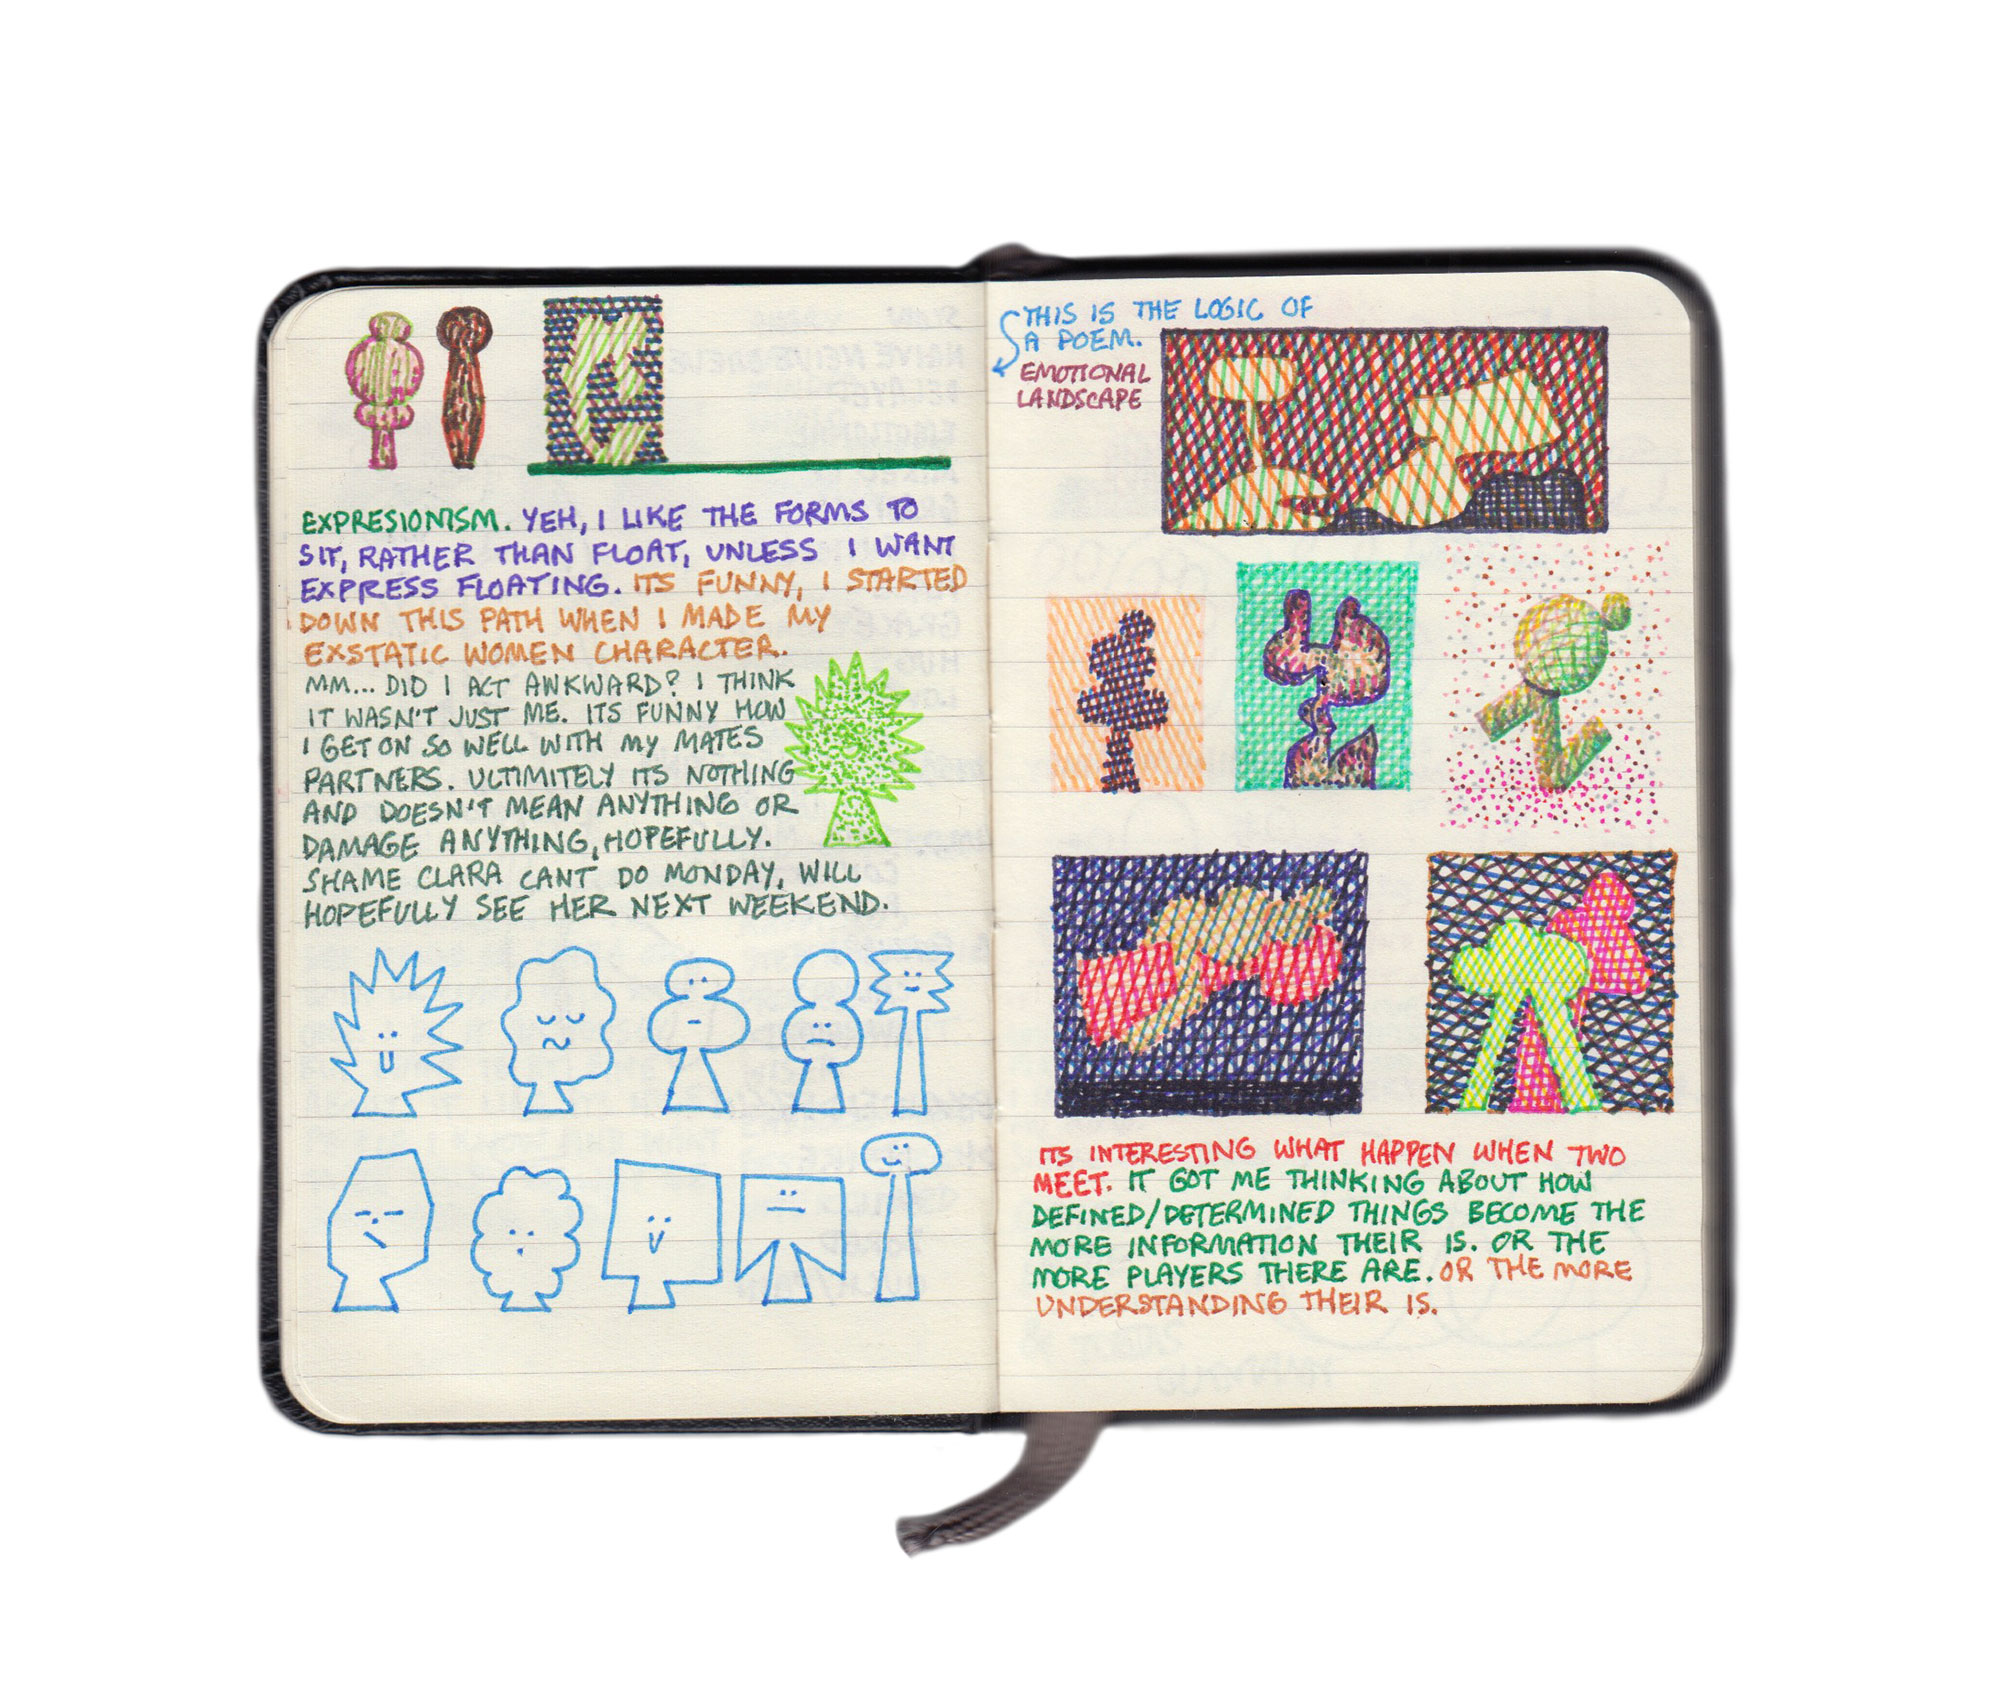 EXPRESIONISM. YEH, I LIKE THE FORMS TO
SIT, RATHER THAN FLOAT, UNLESS I WANT
EXPRESS FLOATING. ITS FUNNY, I STARTED
DOWN THIS PATH WHEN I MADE MY
EXSTATIC WOMEN CHARACTER.
MM... DID I ACT AWKWARD? I THINK
IT WASN'T JUST ME. ITS FUNNY HOW
I GET ON SO WELL WITH MY MATES
PARTNERS. ULTIMITELY ITS NOTHING
AND DOESN'T MEAN ANYTHING OR
DAMAGE ANYTHING, HOPEFULLY.
SHAME CLARA CANT DO MONDAY, WILL
HOPEFULLY SEE HER NEXT WEEKEND.
THIS IS THE LOGIC OF
A POEM.
EMOTIONAL
LANDSCAPE
ITS INTERESTING WHAT HAPPEN WHEN TWO
MEET. IT GOT ME THINKING ABOUT HOW
DEFINED/DETERMINED THINGS BECOME THE
MORE INFORMATION THEIR IS. OR THE
MORE PLAYERS THERE ARE. OR THE MORE
UNDERSTANDING THEIR IS.